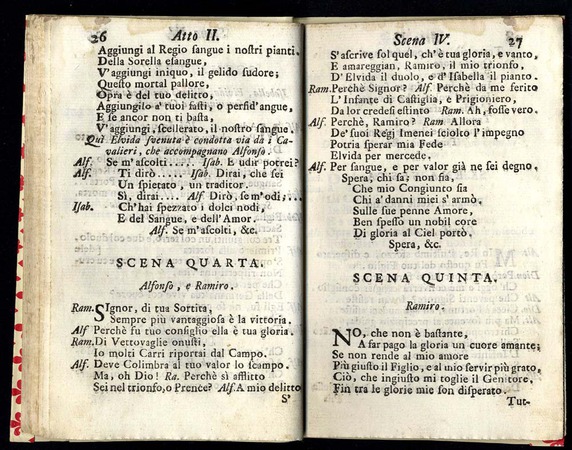 26 Atto II.
Aggiungi al Regio ſangue i noſtri pianti.
Della Sorella eſangue,
V'aggiungi iniquo, il gelido ſudore;
Queſto mortal pallore,
Opra è del tuo delitto,
Aggiungilo a' tuoi faſti, o perfid'angue,
E ſe ancor non ti baſta,
V'aggiungi, ſcellerato, il noſtro ſangue.
Quì Elvida ſvenuta è condotta via da i Ca-
valieri, che accompagnano Alfonſo.
Alf. Se m'aſcolti..... Iſab. E udir potrei?
Alf. Ti dirò..... Iſab. Dirai, che ſei
Un ſpietato, un traditor.
Sì, dirai.... Alf Dirò, ſe m'odi;...
Iſab. Ch'hai ſpezzato i dolci nodi,
E del Sangue, e dell'Amor.
Alf. Se m'aſcolti, &c.
SCENA QUARTA.
Alfonſo, e Ramiro.
Ram. SIgnor, di tua Sortita,
Sempre più vantaggioſa è la vittoria.
Alf Perchè fu tuo conſiglio ella è tua gloria.
Ram. Di Vettovaglie onuſti,
Io molti Carri riportai dal Campo.
Alf. Deve Colimbra al tuo valor lo ſcampo.
Ma, oh Dio! Ra. Perchè sì afflitto
Sei nel trionſo, o Prence? Alf. A mio delitto
S'
Scena IV. 27
S'aſcrive ſol quel, ch'è tua gloria, e vanto,
E amareggian, Ramiro, il mio trionfo,
D'Elvida il duolo, e d'Iſabella il pianto.
Ram. Perchè Signor? Alf. Perchè da me ferito
L'Infante di Caſtiglia, è Prigioniero,
Da lor credeſi eſtinto Ram. Ah, foſſe vero.
Alf. Perchè, Ramiro? Ram Allora
De' ſuoi Regj Imenei ſciolto l'impegno
Potria ſperar mia Fede
Elvida per mercede.
Alf. Per ſangue, e per valor già ne ſei degno.
Spera, chi ſa; non ſia,
Che mio Congiunto ſia
Chi a' danni miei s'armò.
Sulle ſue penne Amore,
Ben ſpeſſo un nobil core
Di gloria al Ciel portò.
Spera, &c.
SCENA QUINTA.
Ramiro.
NO, che non è baſtante,
A far pago la gloria un cuore amante;
Se non rende al mio amore
Più giuſto il Figlio, e al mio ſervir più grato,
Ciò, che ingiuſto mi toglie il Genitore,
Fin tra le glorie mie ſon diſperato.
Tut-